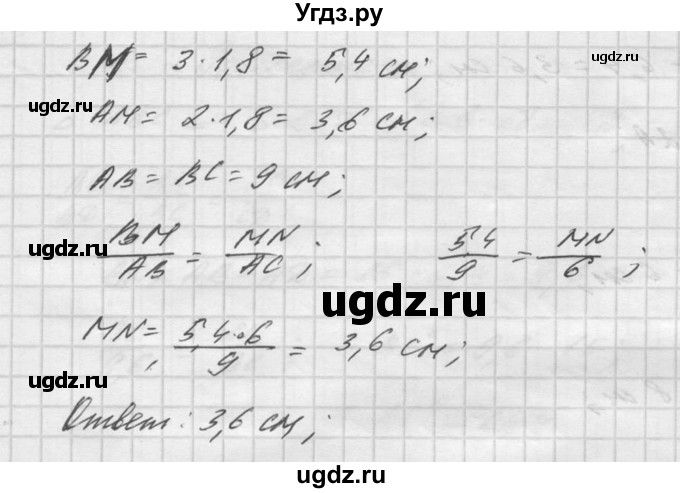 Угдз.ру
BM = 3 · 1,8 = 5,4 см;
ugdz.ru
ugdz.ru
AM = 2 · 1,8 = 3,6 см;
AB = BC = 9 см;
BM/AB = MN/AC; 5,4/9 = MN/6;
ugdz.ru
ugdz.ru
ugdz.ru
MN = 5,4·6/9 = 3,6 см;
ugdz.ru
Ответ: 3,6 см;
ugdz.ru